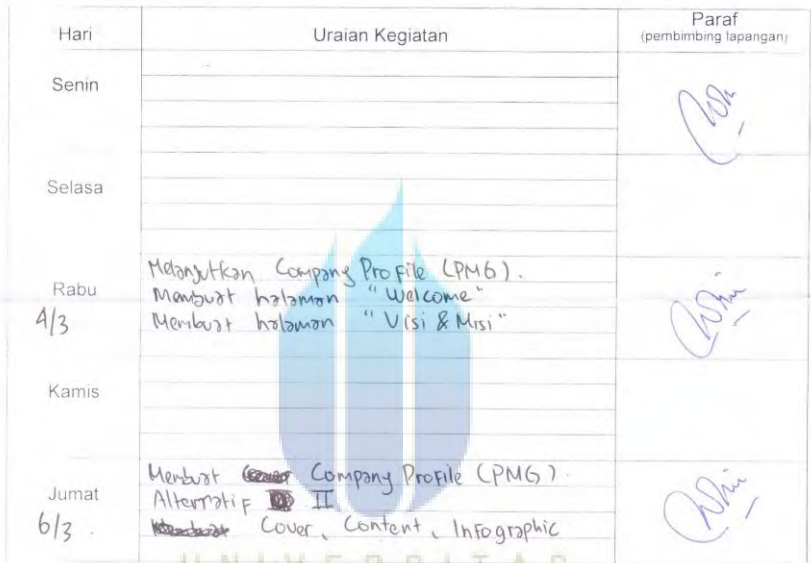 Hari Uraian Kegiatan Paraf
(pembimbing lapangan)
Senin
Selasa
Melanjutkan Company Profile (PMG).
Rabu Membuat halaman "Welcome"
4/3 Membuat halaman "Visi & Misi"
Kamis
Membuat Company Profile (PMG).
Jumat Alternatif II
6/3 Cover, Content, Infographic
UNIVERSITAS